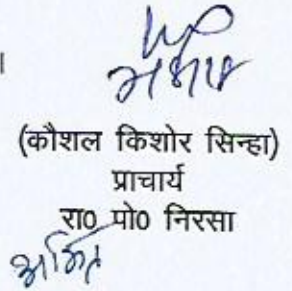 ।
(कौशल किशोर सिन्हा)
प्राचार्य
रा0 पो0 निरसा